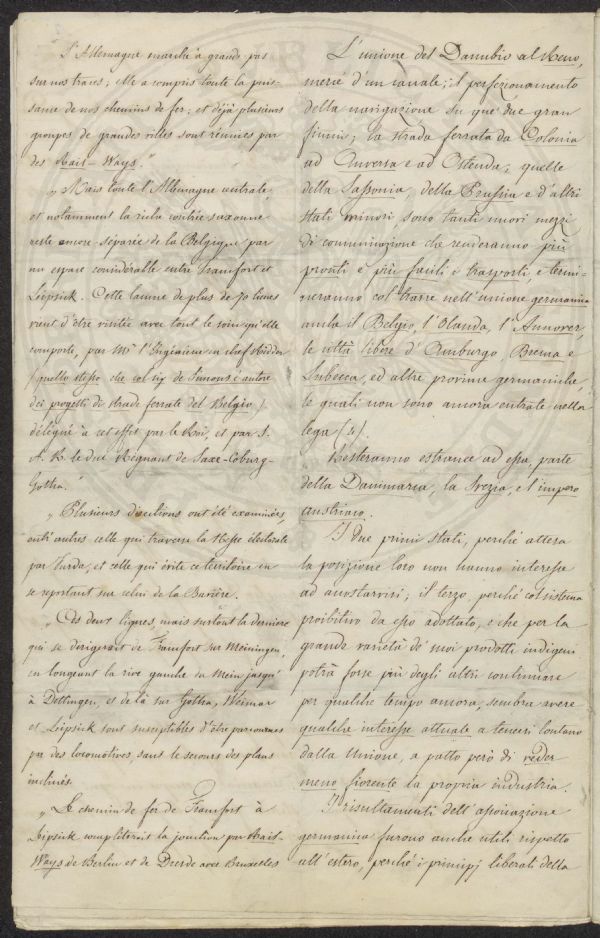 L'Allemagne marche à grands pas
sur nos traces; elle a compris toute la puis-
sance de nos chemins de fer; et déjà plusieurs
groupes de grandes villes sont réunies par
des Rail-Ways."
„ Mais toute l'Allemagne centrale,
et notamment la riche contrée saxonne
reste encore séparée de la Belgique par
un espace considérable entre Francfort et
Leipsick. Cette lacune de plus de 70 lieues
vient d'être visitée avec tout le soin qu'elle
comporte, par Mr l'Ingénieur en chef
(quello stesso che col sig. de Simons è autore
dei progetti di strade ferrate del Belgio)
délégué à cet effet par le Roi, et par S.
A. R. le duc Regnant de Saxe-Coburg-
Gotha."
„ Plusieurs directions ont été examinées,
entr'autres celle qui traverse la Hesse électorale
par Fulda, et celle qui évite ce territoire en
se reportant sur celui de la Bavière.
„ Ces deux lignes, mais surtout la derniere
qui se dirigerait de Francfort sur Meiningen,
en longeant la rive gauche du Mein jusqu'
à Dettingen, et de là sur Gotha, Weimar
et Leipsick sont susceptibles d'être parcourues
par des locomotives, sans le secours des plans
inclinés.
„ Le chemin de fer de Francfort à
Leipsick completerait la jonction par Rail-
Ways de Berlin et de Dresde avec Bruxelles
L'unione del Danubio al Meno,
mercè d'un canale; il perfezionamento
della navigazione su que' due gran
fiumi; la strada ferrata da Colonia
ad Anversa e ad Ostenda, quelle
della Sassonia, della Prussia e d'altri
stati minori sono tanti nuovi mezzi
di comunicazione che renderanno più
pronti e più facili i trasporti, e termi-
neranno col trarre nell'unione germanica
anche il Belgio, l'Olanda, l'Annover,
le città libere d'Amburgo Brema e
Lubecca, ed altre provincie germaniche,
le quali non sono ancora entrate nella
lega (4).
Resteranno estranee ad essa, parte
della Danimarca, la Svezia, e l'impero
austriaco.
I due primi stati, perché attesa
la posizione loro non hanno interesse
ad accostarvisi; il terzo, perché col sistema
proibitivo da esso adottato, e che per la
grande varietà de' suoi prodotti indigeni
potrà forse più degli altri continuare
per qualche tempo ancora, sembra avere
qualche interesse attuale a tenersi lontano
dalla Unione, a patto però di veder
meno fiorente la propria industria.
I risultamenti dell'associazione
germanica furono anche utili rispetto
all'estero, perché i principj liberali della